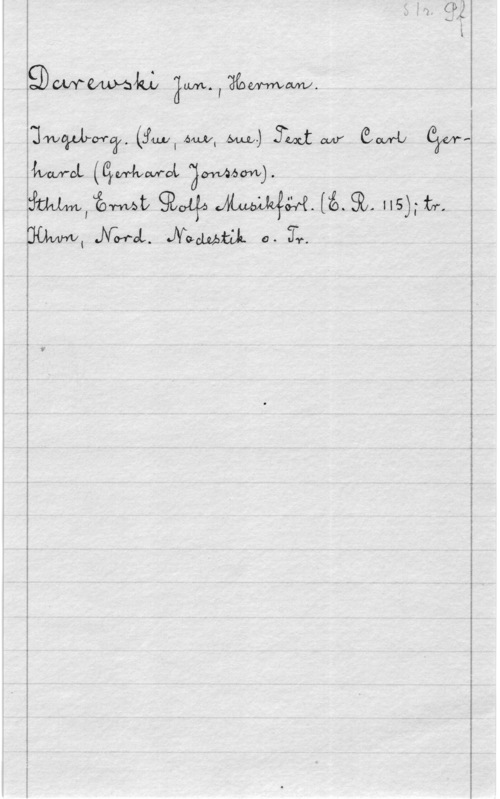 S/n. Pf
Darewski Jun., Herman.
Ingeborg. (Sue, sue, sue.) Text av Carl Ger-
hard (Gerhard Jonsson).
Sthlm, Ernst Rolfs Musikförl. (E. R. 115); tr.
Khvn, Nord. Nodestik o. Tr.